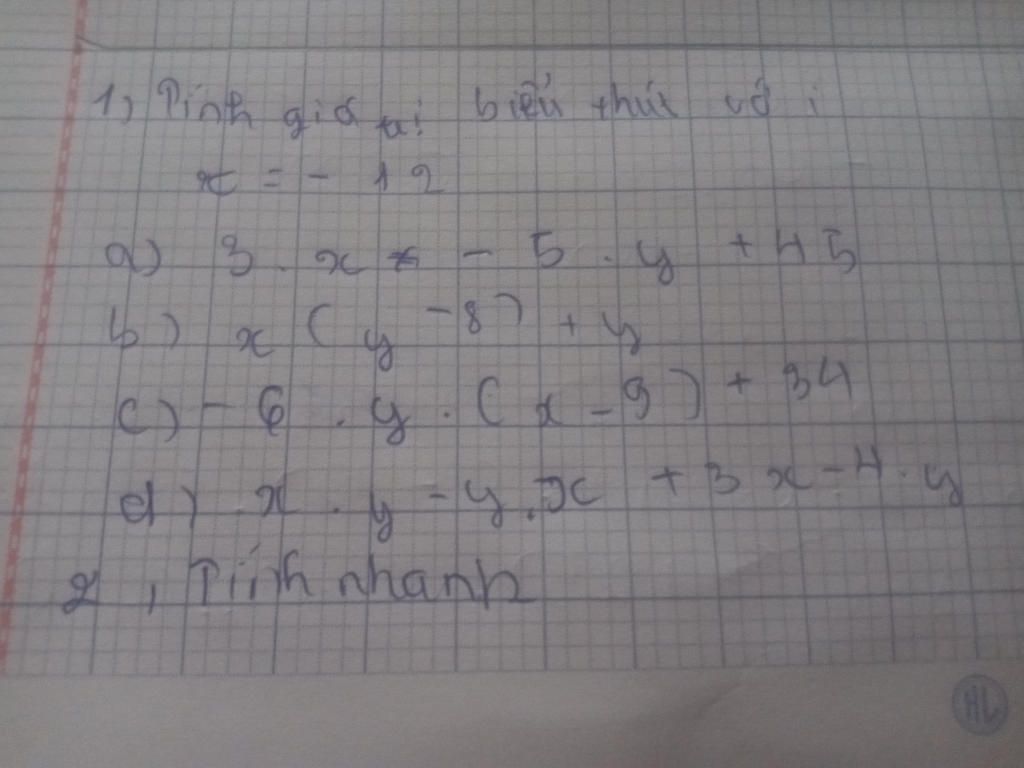 1, Tính giá trị biểu thức với
x = - 12
a) 3 . x - 5 . y + 45
b) x ( y - 8 ) + y
c) - 6 . y . ( x - 9 ) + 34
d) x . y - y . x + 3 x - 4 . y
2 , Tính nhanh
HL